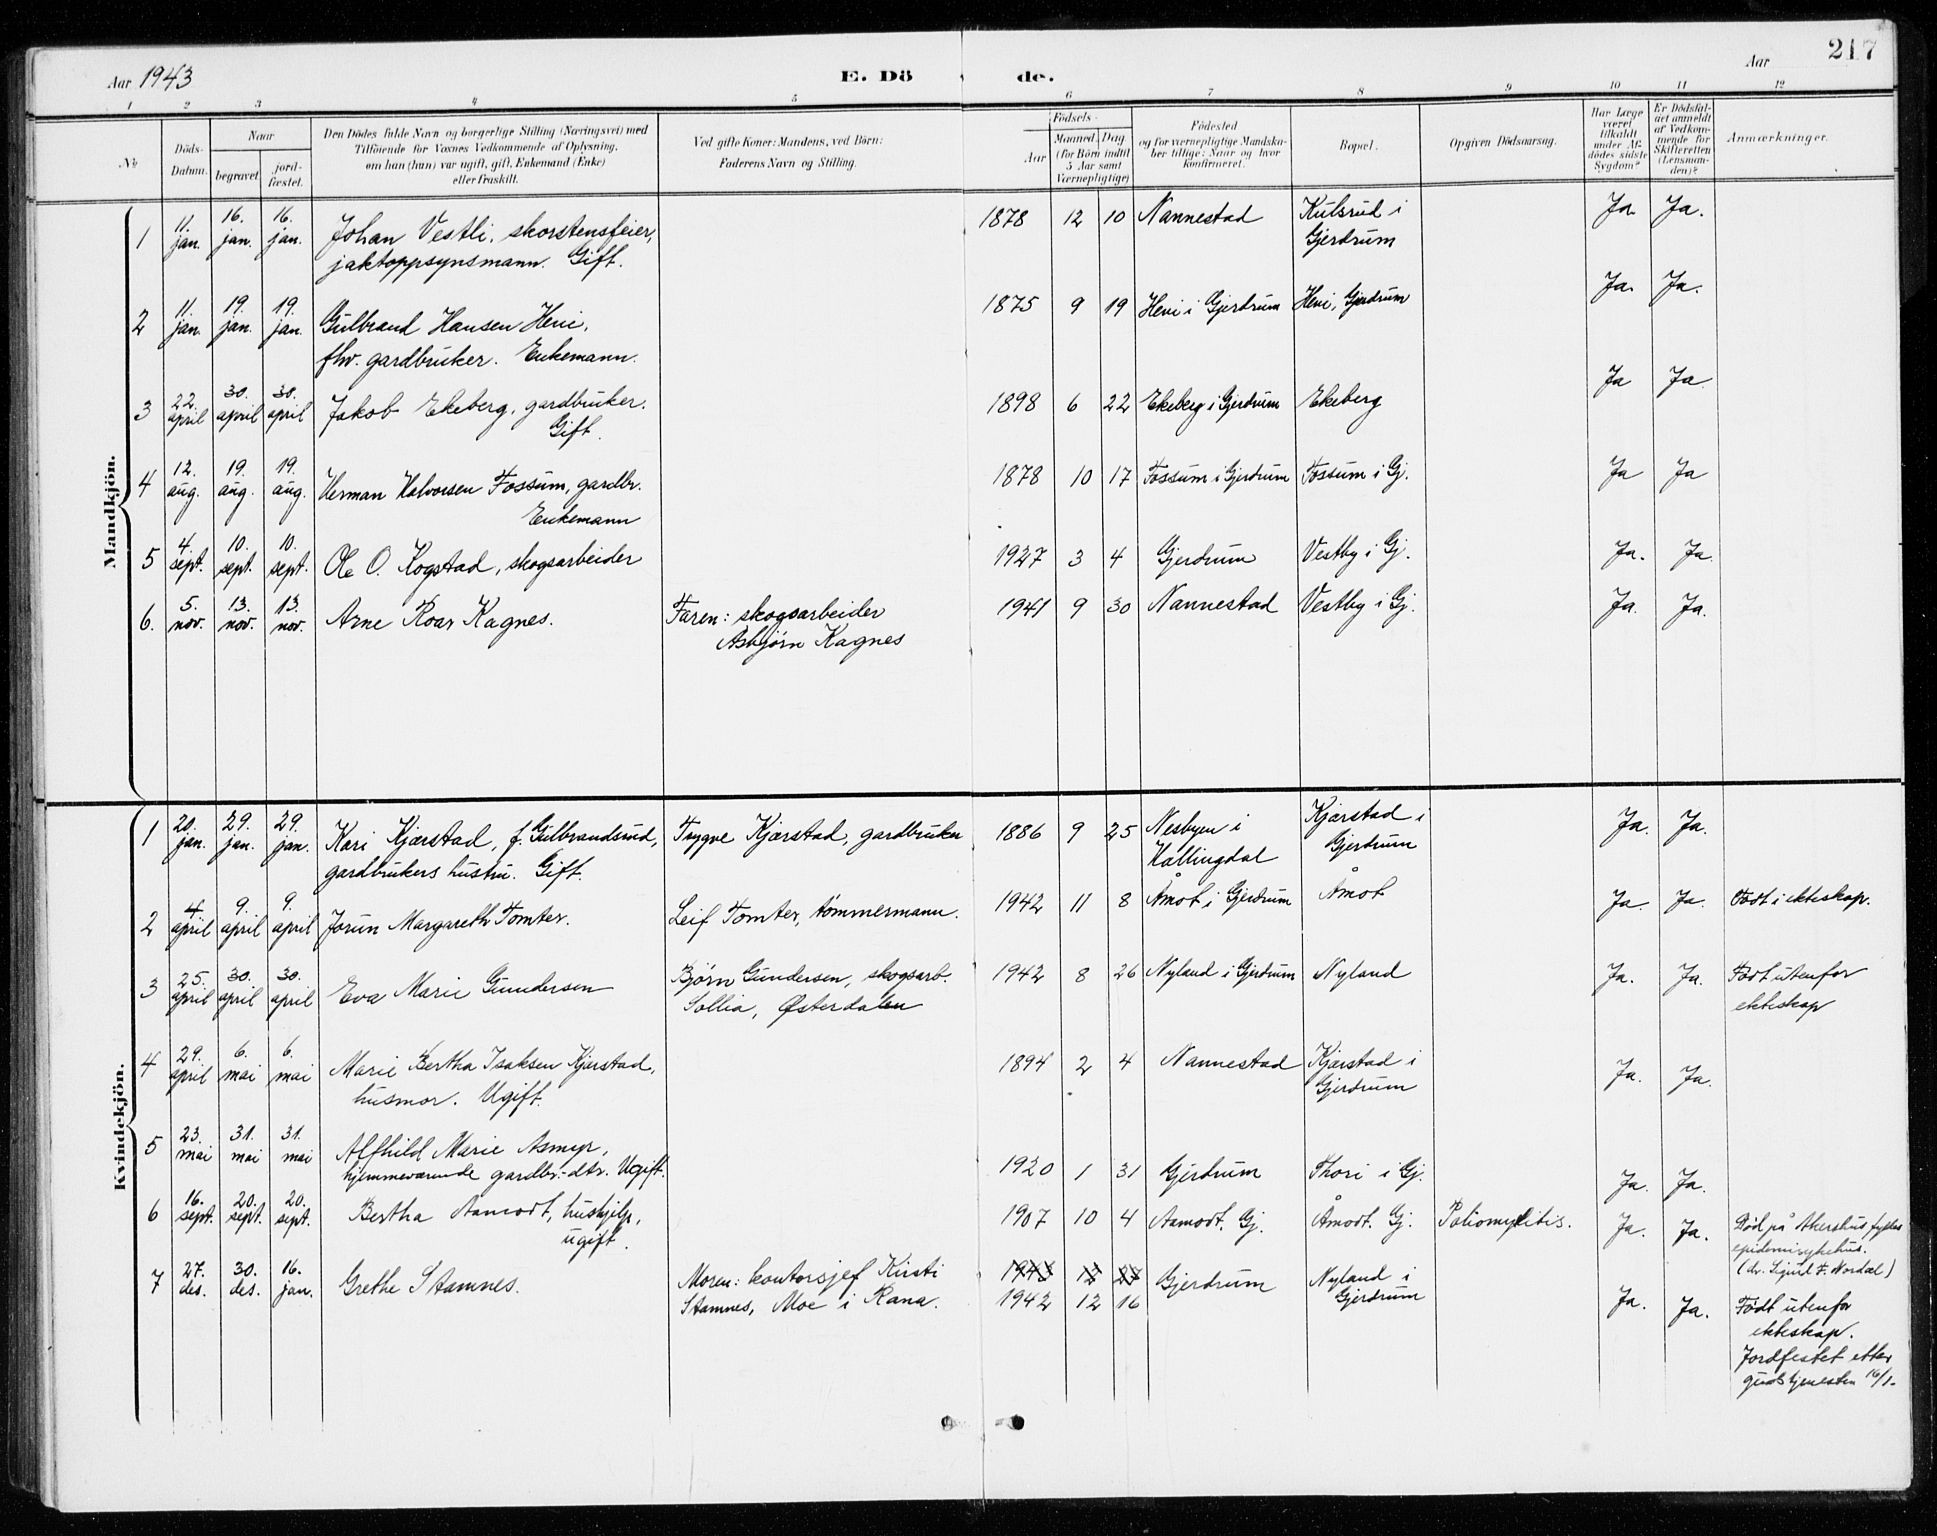 Aar 1943
E. Dö
de.
Aar
217
1 2 3 4 5 6 7 8 9 10 11 12
No
Döds-Datum.
Naar
begravet.
jord-fæstet.
Den Dödes fulde Navn og borgerlige Stilling (Næringsvei) med
Tilföiende for Voxnes Vedkommende af Oplysning,
om han (hun) var ugift, gift, Enkemand (Enke)
eller fraskilt.
Ved gifte Koner: Mandens, ved Börn:
Faderens Navn og Stilling.
Födsels-
Aar
Maaned. Dag
(for Börn indtil
5 Aar samt
Værnepligtige)
Födested
og for værnepligtige Mandska-
ber tillige: Naar og hvor
konfirmeret.
Bopæl.
Opgiven Dödsaarsag.
Har Læge
været
tilkaldt
under Af-
dödes sidste
Sygdom?
Er Dödsfal-
det anmeldt
af Vedkom-
mende for
Skifteretten
(Lensman-
den)?
Anmærkninger.
Mandkjön.
1 11. jan. 16. jan. 16. jan. Johan Vestli, skorstensfeier, 1878 12 10 Nannestad Kulsrud i Ja. Ja.
jaktoppsynsmann. Gift. Gjerdrum
2 11. jan. 19. jan. 19. jan. Gulbrand Hansen Hevi, 1875 9 19 Hevi i Gjerdrum Hevi, Gjerdrum Ja. Ja.
fhv. gardbruker. Enkemann.
3 22. april 30. april 30. april Jakob Ekeberg, gardbruker. 1898 6 22 Ekeberg i Gjerdrum Ekeberg Ja Ja
Gift.
4 12. aug. 19. aug. 19. aug. Herman Halvorsen Fossum, gardbr. 1878 10 17 Fossum i Gjerdrum Fossum i Gj. Ja Ja
Enkemann
5 4. sept. 10. sept. 10. sept. Ole O. Kogstad, skogsarbeider 1927 3 4 Gjerdrum Vestby i Gj. Ja. Ja.
6. 5. nov. 13. nov. 13. nov. Arne Roar Kagnes. Faren: skogsarbeider 1941 9 30 Nannestad Vestby i Gj. Ja. Ja.
Asbjørn Kagnes
Kvindekjön.
1 20. jan. 29. jan. 29. jan. Kari Kjærstad, f. Gulbrandsrud, Trygve Kjærstad, gardbruker 1886 9 25 Nesbyen i Kjærstad i Ja. Ja.
gardbrukers hustru. Gift. Hallingdal Gjerdrum
2 4. april 9. april 9. april Jorun Margareth Tomter. Leif Tomter, tømmermann. 1942 11 8 Åmot i Gjerdrum Åmot Ja. Ja. Født i ekteskap.
3 25. april 30. april 30. april Eva Marie Gundersen Bjørn Gundersen, skogsarb. 1942 8 26 Nyland i Gjerdrum Nyland Ja. Ja. Født utenfor
Sollia, Østerdalen ekteskap
4 29. april 6. mai 6. mai Marie Bertha Isaksen Kjærstad, 1894 2 4 Nannestad Kjærstad i Ja. Ja.
husmor. Ugift. Gjerdrum
5 23. mai 31. mai 31. mai Alfhild Marie Asmyr,
hjemmeværende gardbr.-dtr. Ugift. 1920 1 31 Gjerdrum Thori i Gj. Ja. Ja.
6 16. sept. 20. sept. 20. sept. Bertha Aamodt, hushjelp, 1907 10 4 Aamodt, Gj. Åmodt. Gj. Poliomyelitis. Ja. Ja. Død på Akershus fylkes
ugift. epidemisykehus.
(dr. Sigurd F. Nordal)
7 27. des. 30. des. 16. jan. Grethe Stamnes. Moren: kontorsjef Kirsti 1943 12 27 Gjerdrum Nyland i
Stamnes, Moe i Rana. 1942 12 16 Gjerdrum Ja. Ja. Født utenfor
ekteskap.
Jordfestet etter
gudstjenesten 16/1.